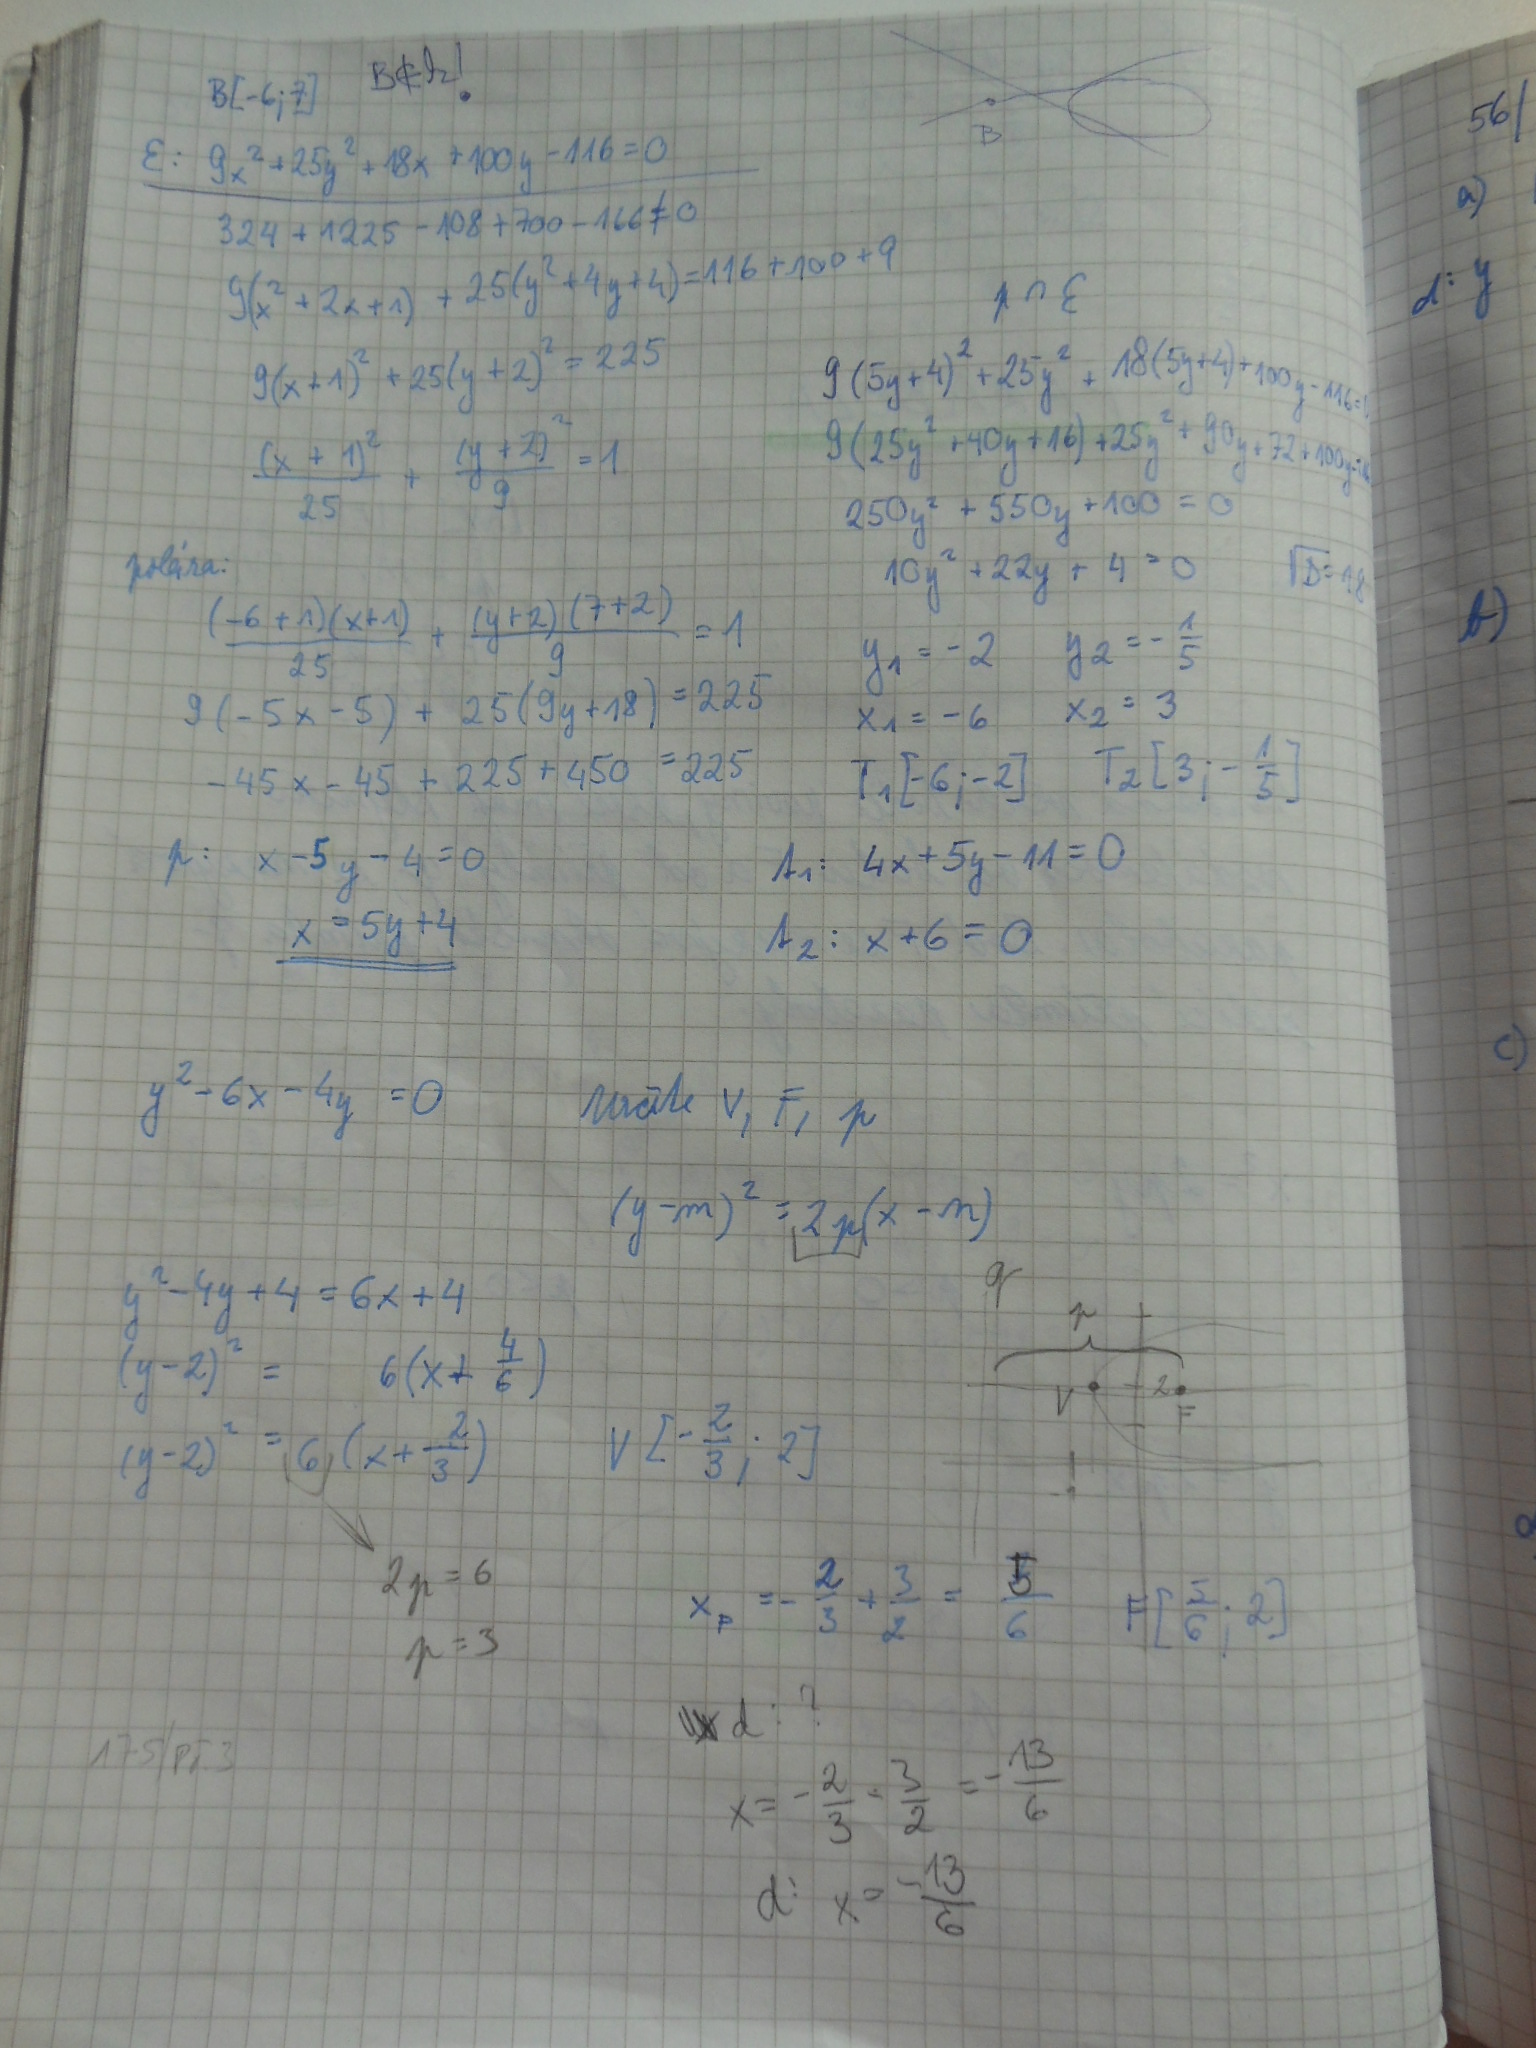 B[-6;7] B∉k!
B
ε: 9x² + 25y² + 18x + 100y - 116 = 0
324 + 1225 - 108 + 700 - 166 ≠ 0
9(x² + 2x + 1) + 25(y² + 4y + 4) = 116 + 100 + 9
9(x+1)² + 25(y+2)² = 225
(x + 1)²/25 + (y + 2)²/9 = 1
polára:
(-6+1)(x+1)/25 + (y+2)(7+2)/9 = 1
9(-5x-5) + 25(9y+18) = 225
-45x - 45 + 225 + 450 = 225
p: x - 5y - 4 = 0
x = 5y + 4
p ∩ ε
9(5y+4)² + 25y² + 18(5y+4) + 100y - 116 = 0
9(25y² + 40y + 16) + 25y² + 90y + 72 + 100y - 116
250y² + 550y + 100 = 0
10y² + 22y + 4 = 0 √D = 18
y₁ = -2 y₂ = -1/5
x₁ = -6 x₂ = 3
T₁[-6;-2] T₂[3;-1/5]
t₁: 4x + 5y - 11 = 0
t₂: x + 6 = 0
y² - 6x - 4y = 0 určite V, F, p
(y-m)² = 2p(x-n)
y² - 4y + 4 = 6x + 4
(y-2)² = 6(x + 4/6)
(y-2)² = 6(x + 2/3) V[-2/3; 2]
2p = 6
p = 3
q
p
V 2 F
-1
x_F = -2/3 + 3/2 = 5/6 F[5/6; 2]
d: ?
x = -2/3 - 3/2 = -13/6
d: x = -13/6
175/PŘ.3
56/
a)
d: y
b)
c)